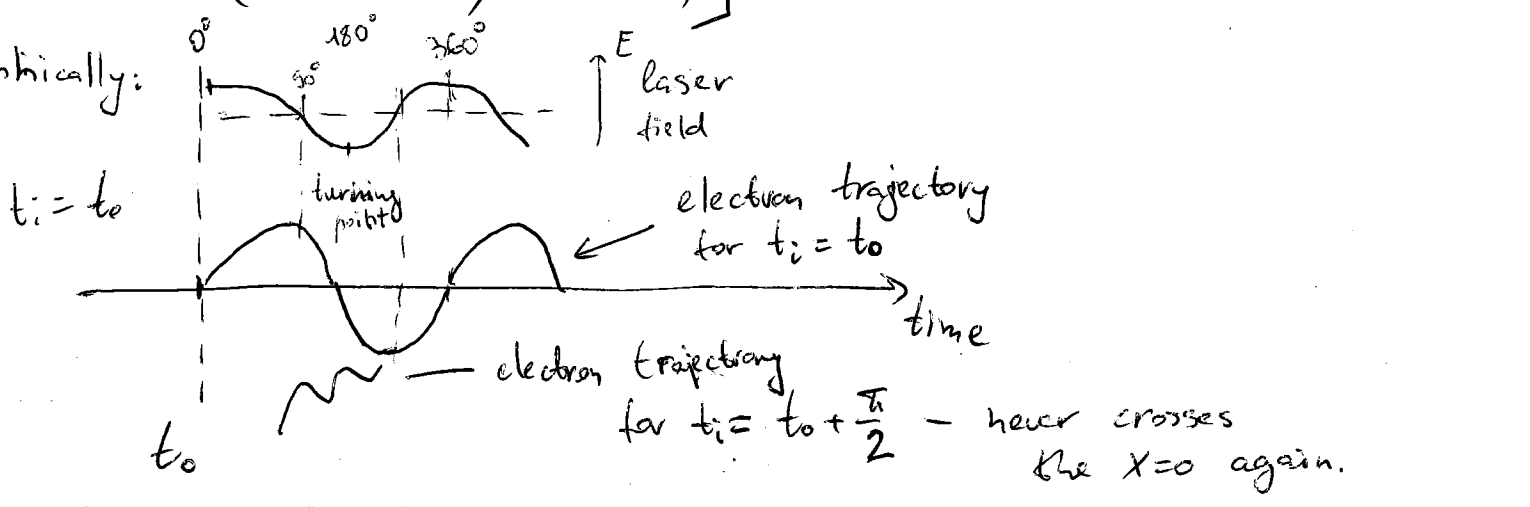 0° 180° 360°
90°
E
laser
field
ti = to
turning
point
electron trajectory
for ti = to
time
electron trajectiory
for ti = to + π/2 - never crosses
the X=0 again.
to